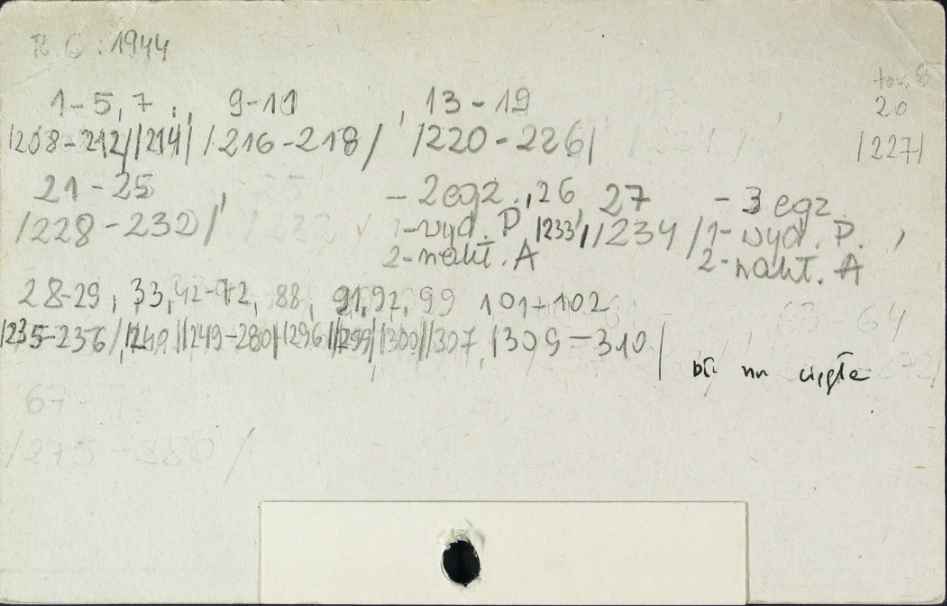 R. 6 : 1944
1-5, 7 , 9-11 , 13-19
20
/208-212/ /214/ /216-218/ /220-226/
/227/
21-25 - 2 egz., 26, 27 - 3 egz.
/228-232/ 1-wyd. P. /233/, /234/ 1-wyd. P. ,
2-nakł. A 2-nakł. A
28-29, 33, 42-72, 88, 91, 92, 99 101+102
/235-236/, /240/ /249-280/ /296/ /299/ /300/ /307, /309-310/
64
nr ciągłe
67-
/275-280/